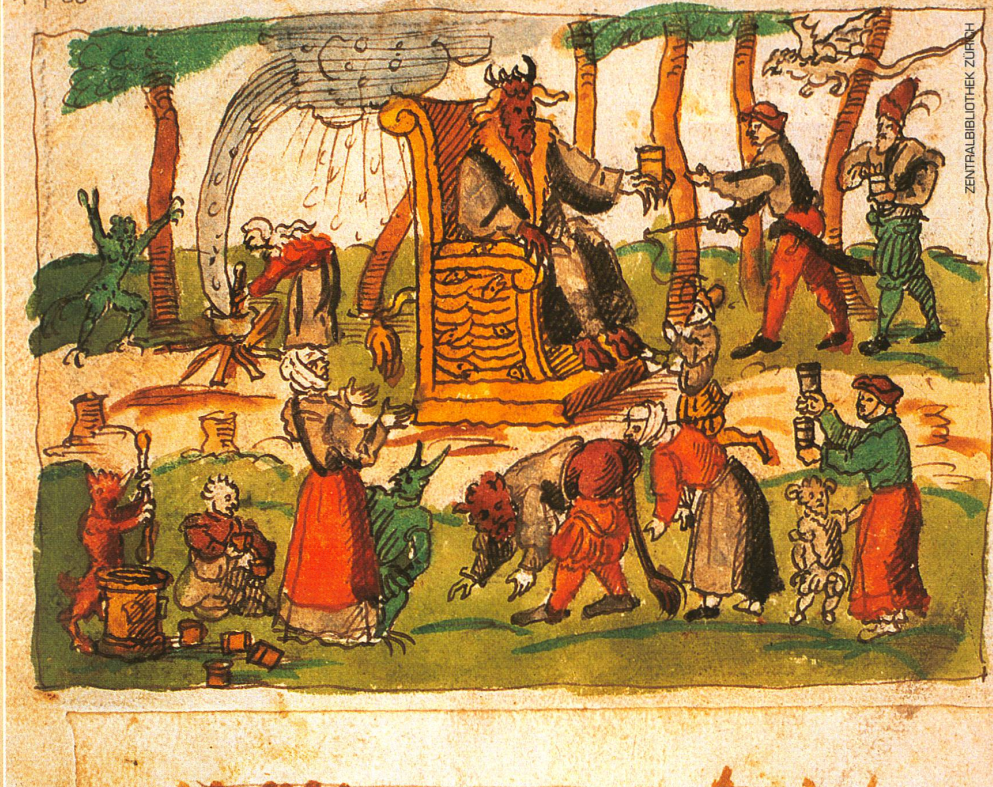 ZENTRALBIBLIOTHEK ZÜRICH